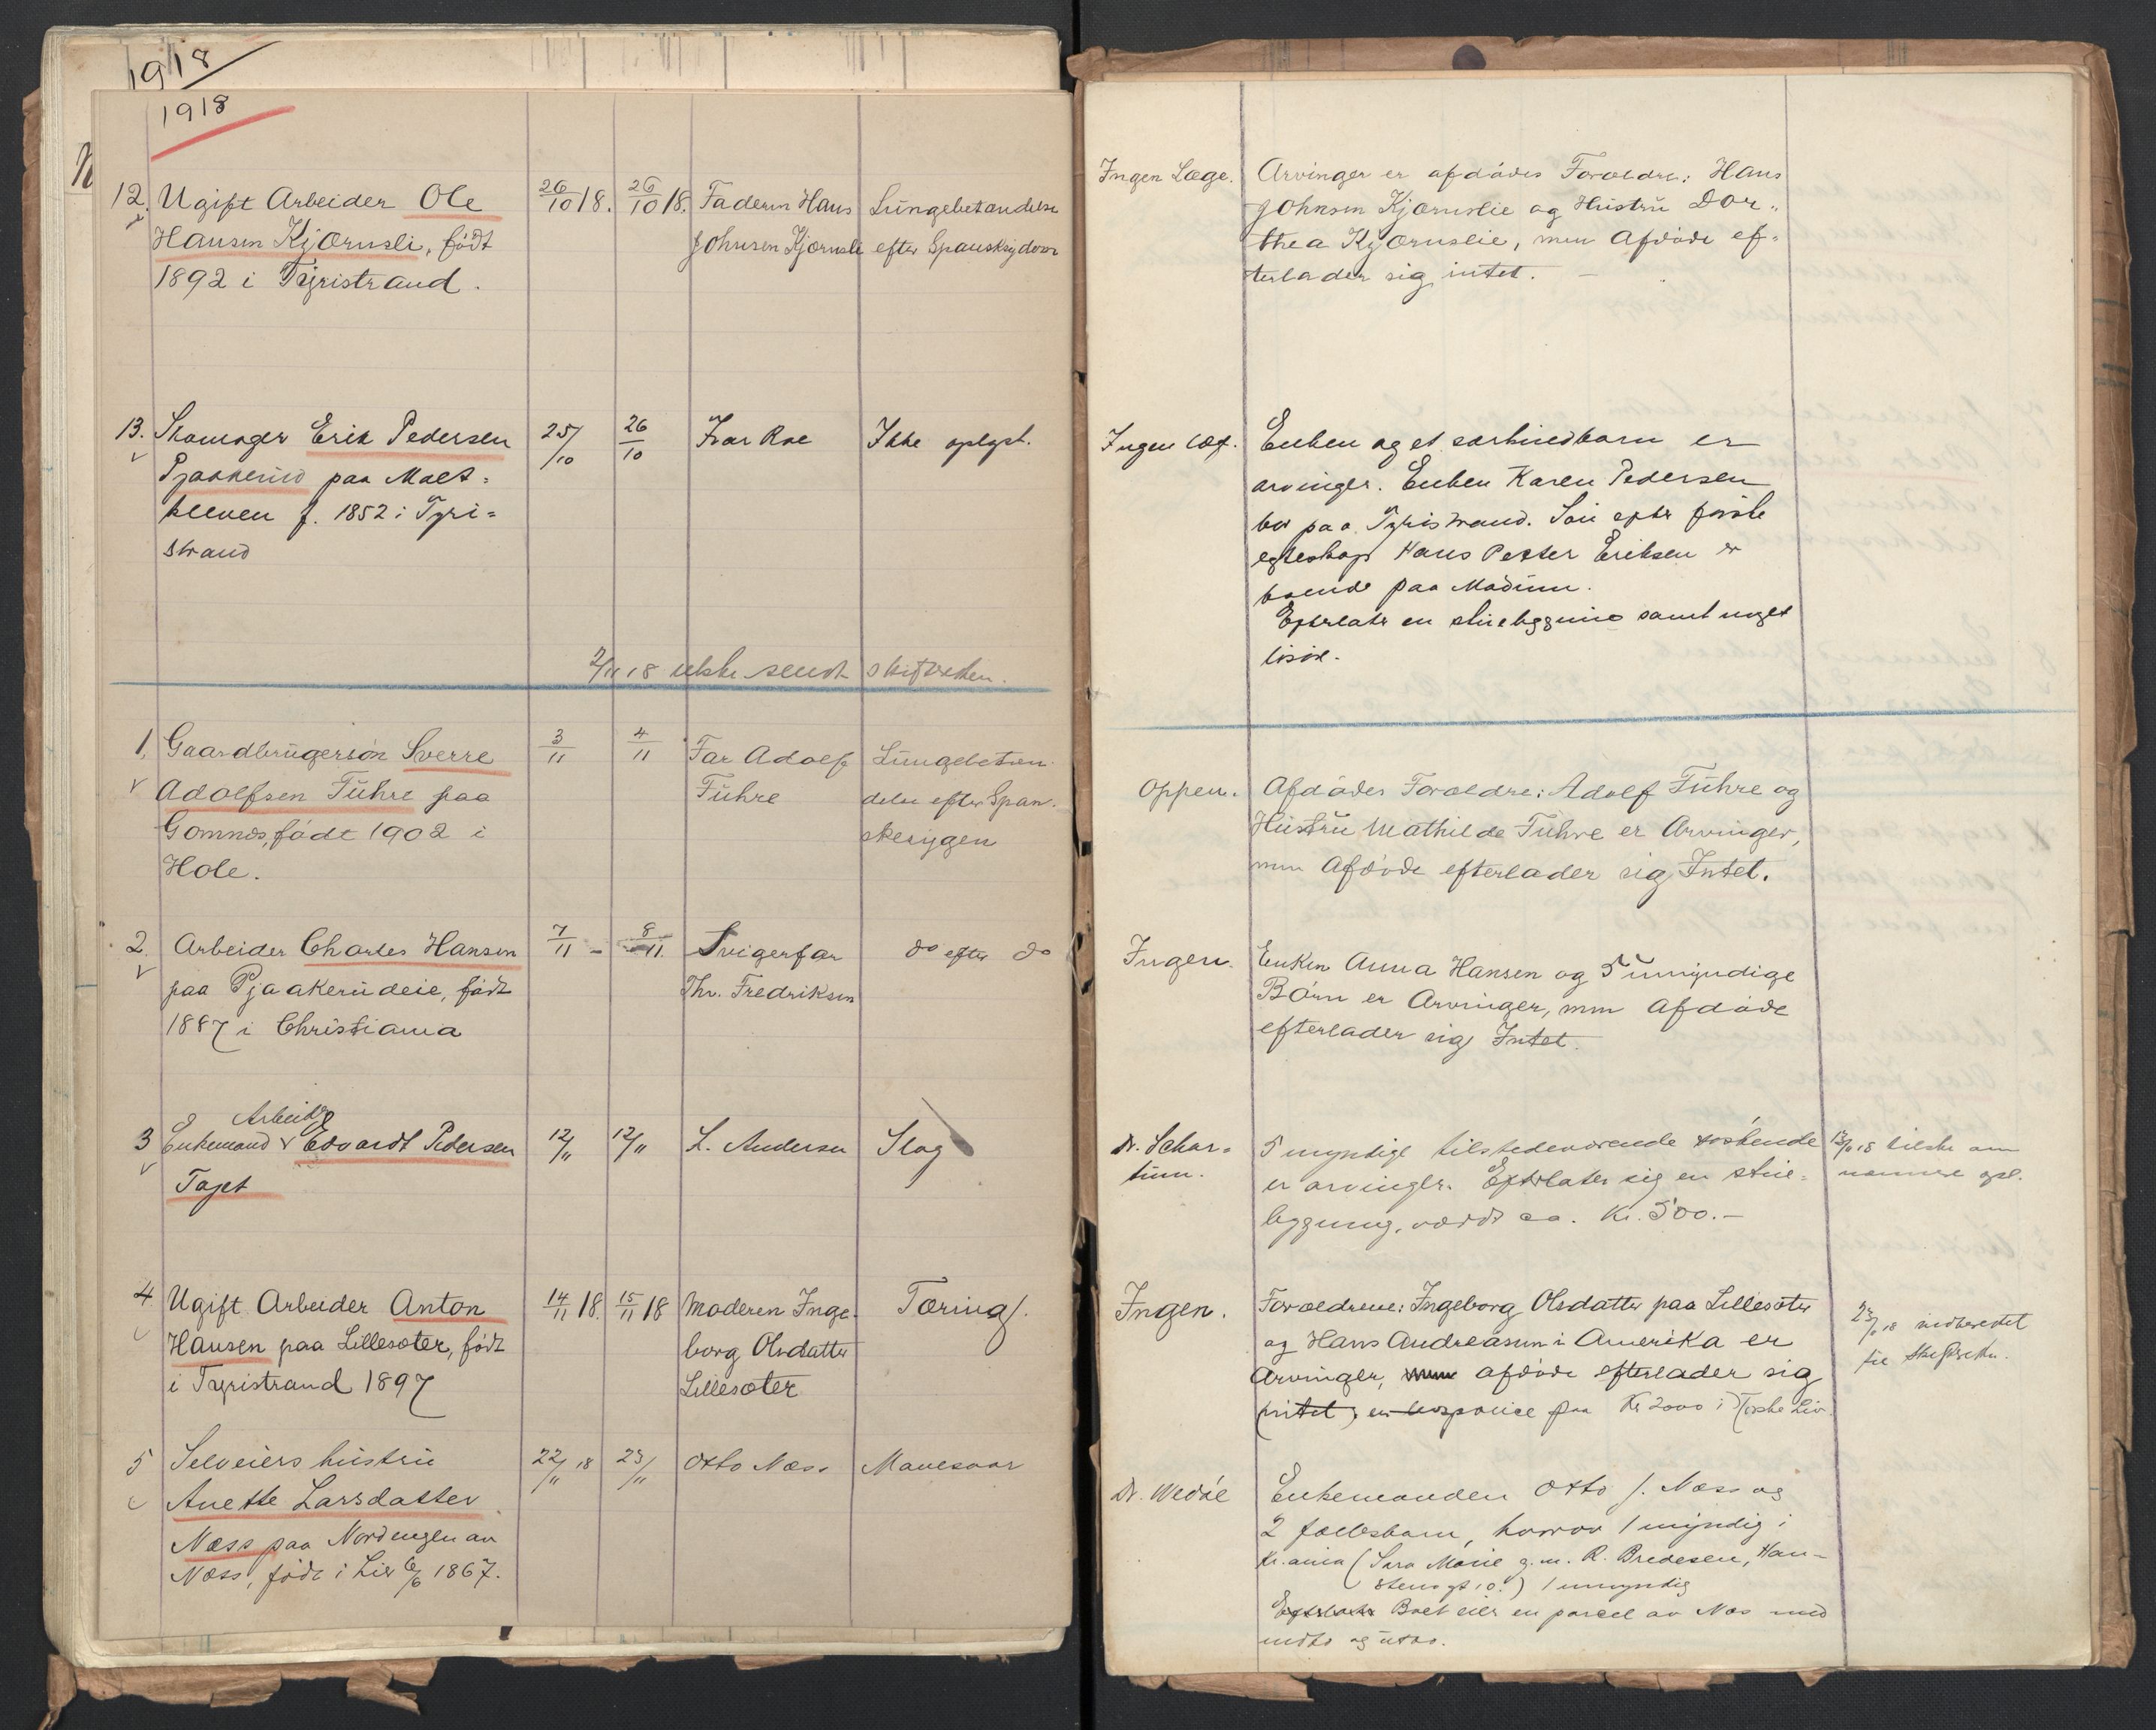 1918
1918
12. Ugift Arbeider Ole
Hansen Kjærnsli, født
1892 i Tyristrand.
26/10 18.
26/10 18.
Faderen Hans
Johnsen Kjærnsli
Lungebetændelse
efter Spansksyken
13. Skomager Erik Pedersen
Pjaakerud paa Molt=
kleven f. 1852 i Tyri=
strand
25/10
26/10
Ivar Roe
Ikke oplyst.
2/11 18 utskr. sendt skifteretten.
1. Gaardbrugersøn Sverre
Adolfsen Fuhre paa
Gomnæs, født 1902 i
Hole.
3/11
4/11
Far Adolf
Fuhre
Lungebetæn-
delse efter Span-
skesygen
2 Arbeider Charles Hansen
paa Pjaakerudeie, født
1887 i Christiania
7/11 -
8/11.
Svigerfar
Thv. Fredriksen
do efter do
Arbeider
3 Enkemand v Edvardt Pedersen
Taget
12/11
12/11
L. Andersen
Slag
4 Ugift Arbeider Anton
Hansen paa Lillesæter, født
i Tyristrand 1897
14/11 18.
15/11 18
Moderen Inge-
borg Olsdatter
Lillesæter
Tæring.
5 Selveiers hustru
Anette Larsdatter
Næss paa Nordengen av
Næss, født i Lier 6/6 1867.
22/11 18
23/11
Otto Næss
Mavesaar
Ingen Læge.
Arvinger er afdødes Forældre: Hans
Johnsen Kjærnslie og Hustru Dor„
thea Kjærnslie, men Afdøde ef=
terlader sig intet. —
Ingen læg.
Enken og et særkuldbarn er
arvinger. Enken Karen Pedersen
bor paa Tyristrand. Søn efter første
egteskap Hans Petter Eriksen er
boende paa Modum.
Efterlater en stuebygning samt noget
løsøre.
Oppen.
Afdødes Forældre: Adolf Fuhre og
Hustru Mathilde Fuhre er Arvinger,
men Afdøde efterlader sig Intet.
Ingen.
Enken Anna Hansen og 5 umyndige
Børn er Arvinger, men Afdøde
efterlader sig Intet.
Dr. Schar=
tum.
5 myndige tilstedeværende søskende
er arvinger. Efterlater sig en stue=
bygning, værdt ca. Kr. 500.—
13/11 18 tilskr. om
nærmere opl.
Ingen.
Forældrene: Ingeborg Olsdatter paa Lillesæter
og Hans Andreasen i Amerika er
Arvinger, men afdøde efterlader sig
intet, en livspolice paa Kr 2000 i Norske Liv.
23/11 18 indberettet
til Skifteretten.
Dr. Wedøe
Enkemanden Otto J. Næss og
2 fællesbarn, hvorav 1 myndig i
Kr.ania (Sara Marie g.m. R. Bredesen, Hau-
stensgt 10.) 1 umyndig
Efterlater Boet eier en parcel av Næs med
indbo og utbo.